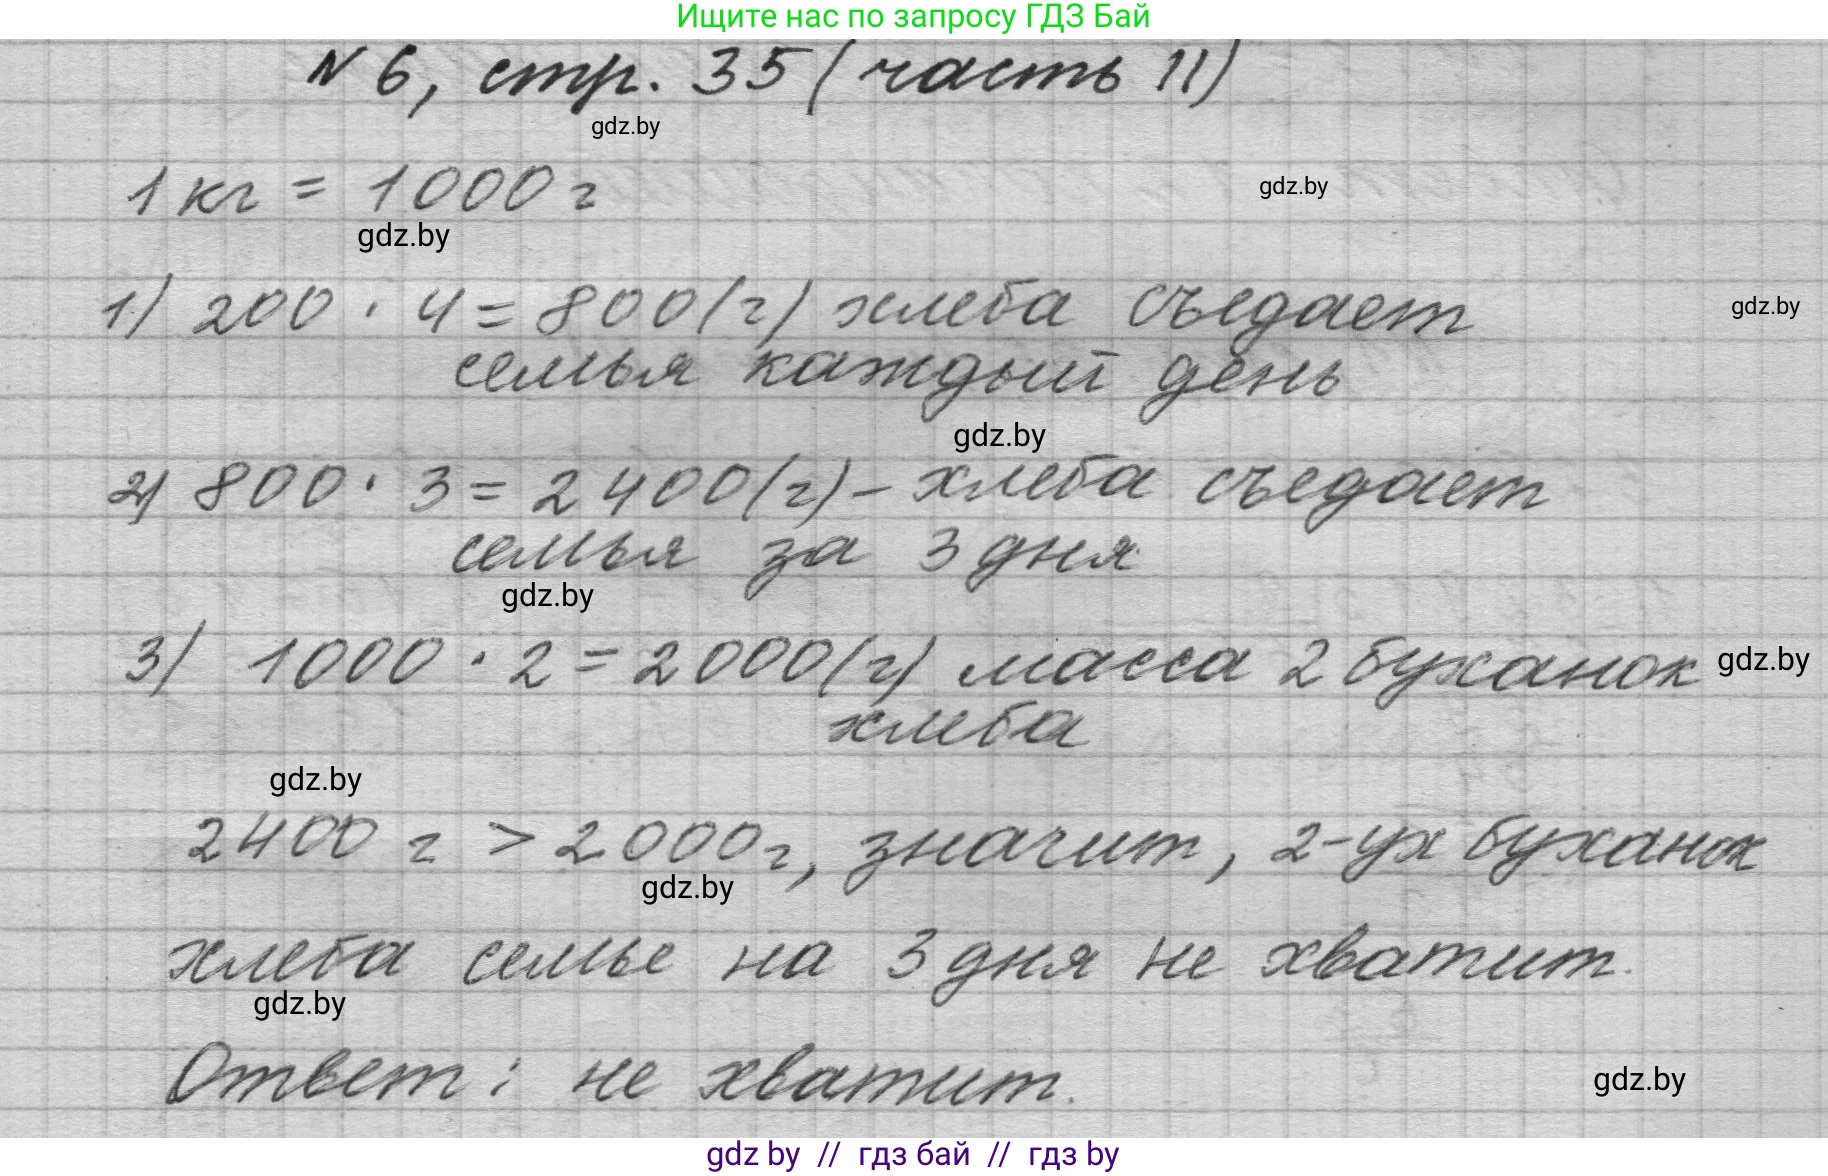 Ищите нас по запросу ГДЗ Бай
N 6, стр. 35 (часть II)
gdz.by
1 кг = 1000 г
gdz.by
gdz.by
1) 200 · 4 = 800 (г) хлеба съедает
gdz.by
семья каждый день
gdz.by
2) 800 · 3 = 2400 (г) – хлеба съедает
семья за 3 дня
gdz.by
3) 1000 · 2 = 2000 (г) масса 2 буханок
gdz.by
хлеба
gdz.by
2400 г > 2000 г, значит, 2-ух буханок
gdz.by
хлеба семье на 3 дня не хватит.
gdz.by
Ответ: не хватит.
gdz.by
gdz by // гдз бай // гдз by